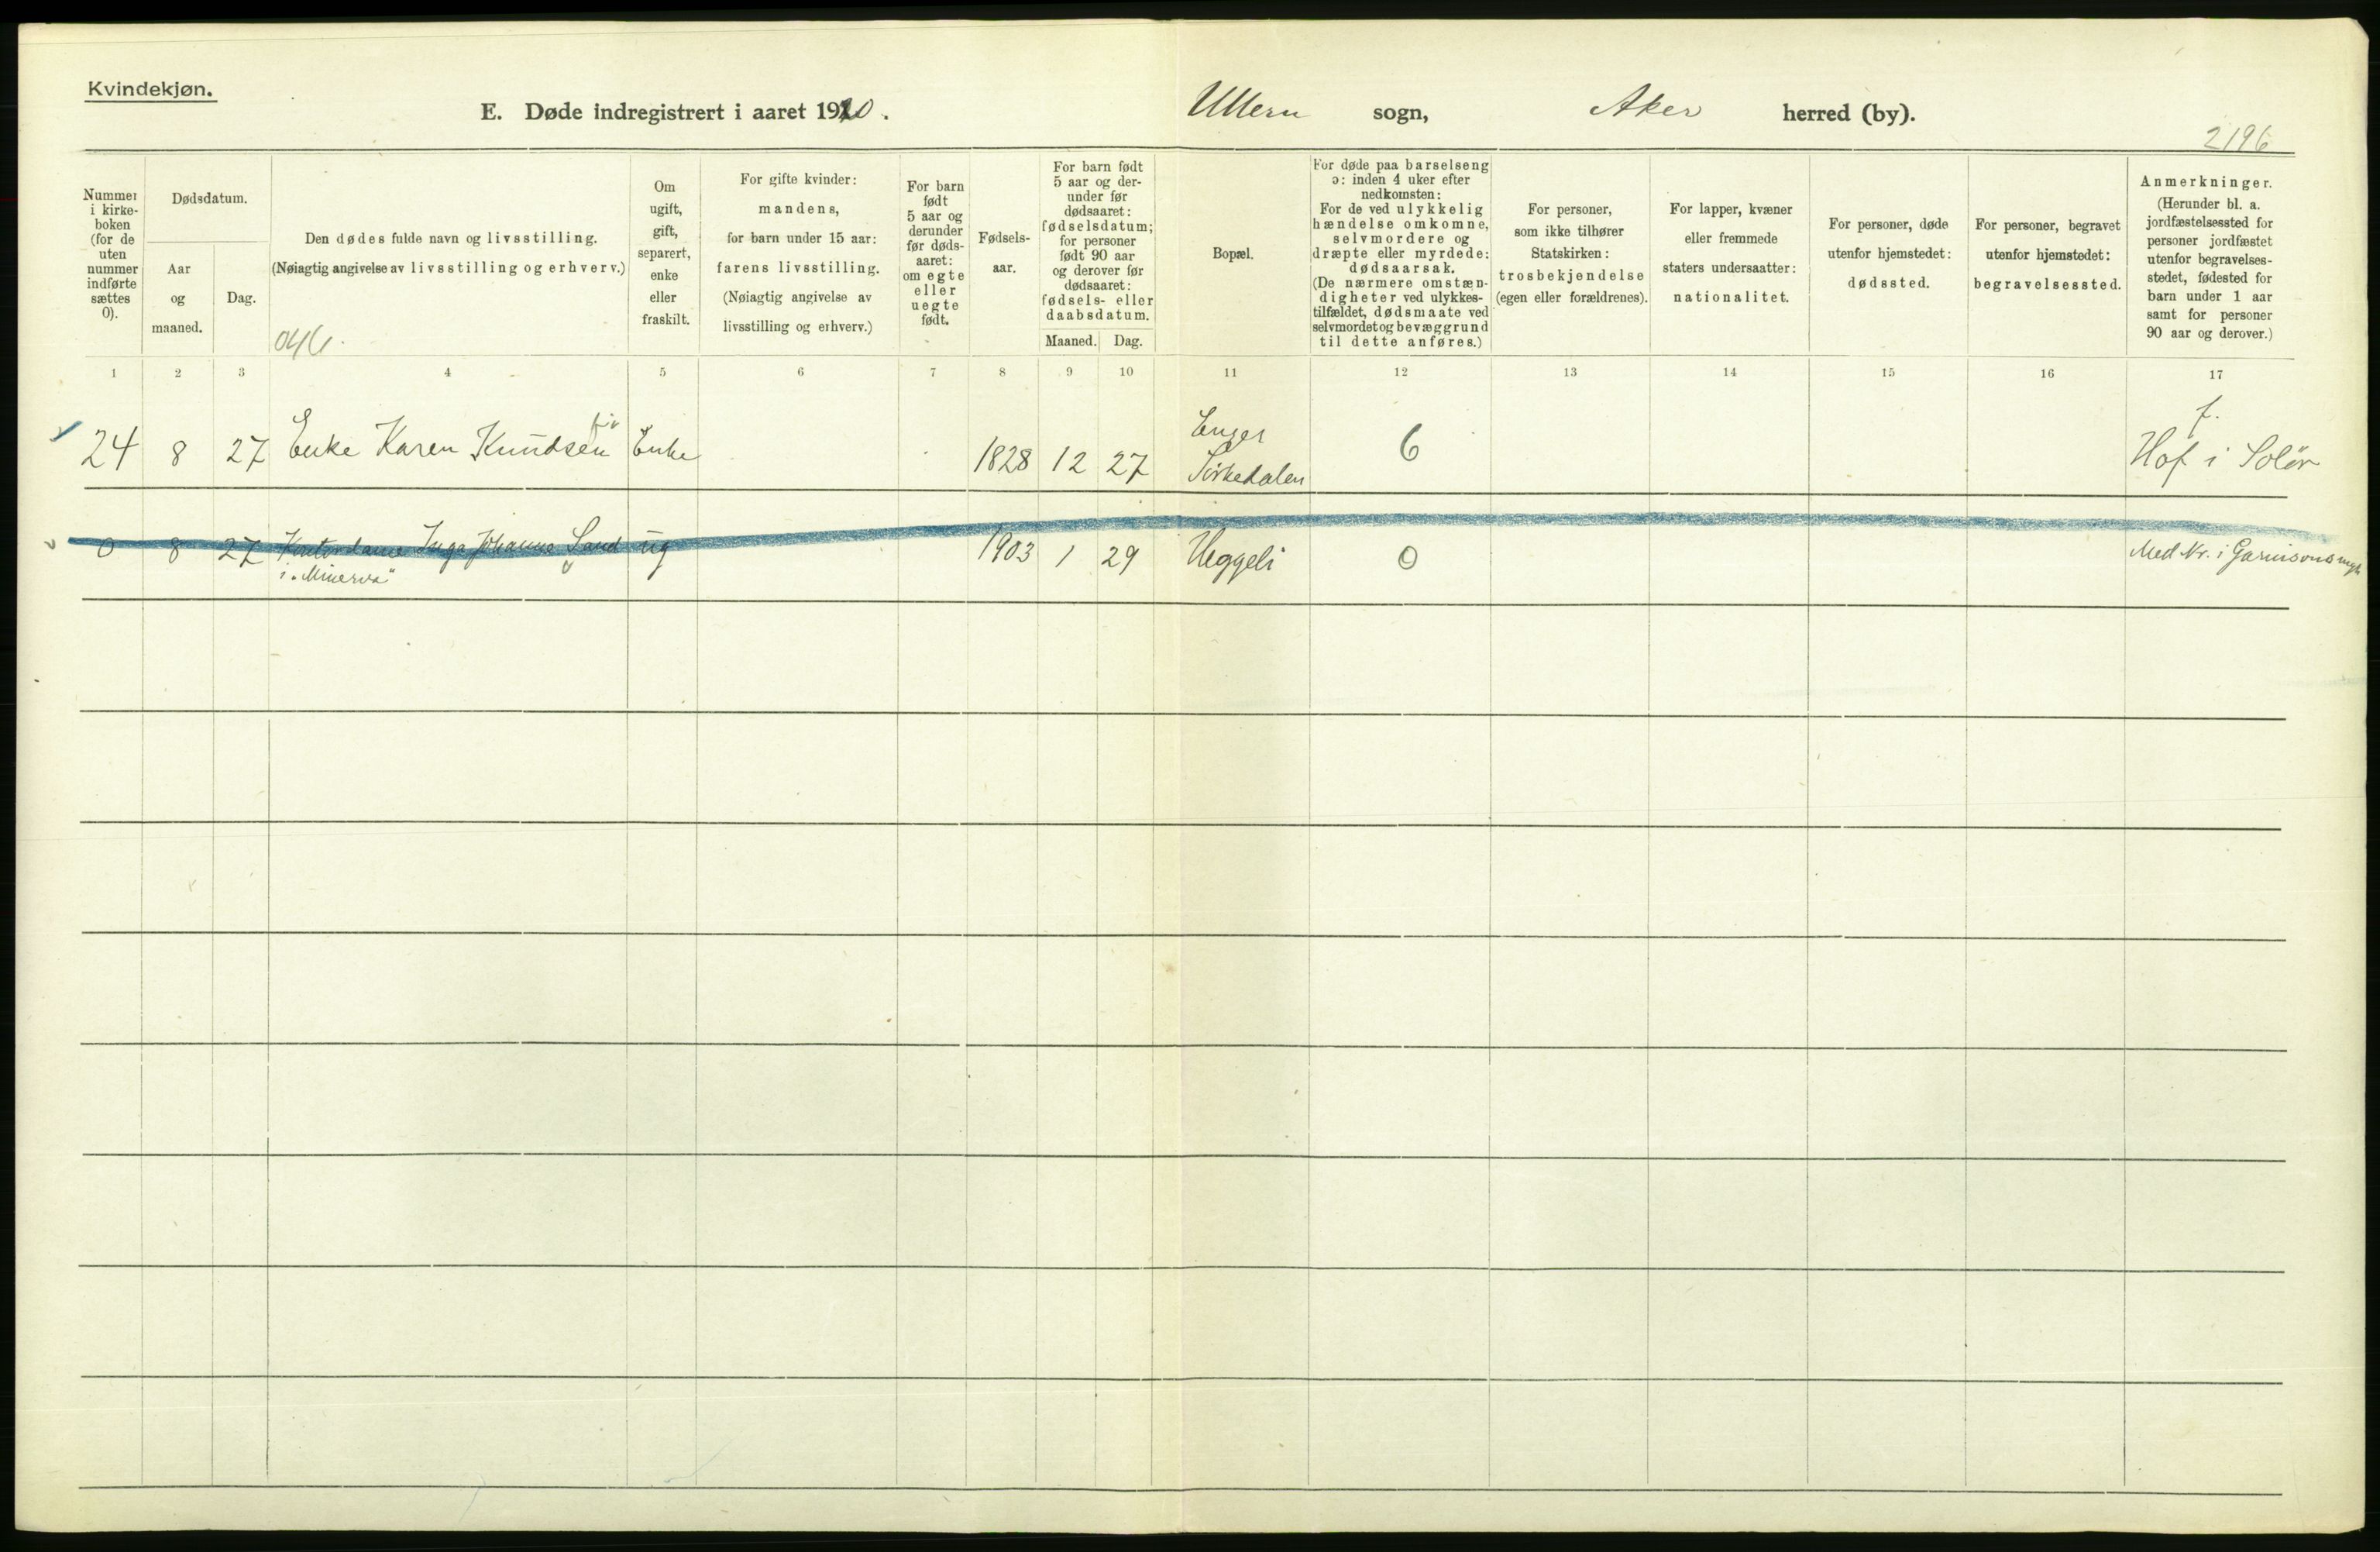 Kvindekjøn.
E. Døde indregistrert i aaret 1920.
Ullern sogn, Aker herred (by).
2196
Nummer i kirke-boken (for de uten nummer indførte sættes 0).
Dødsdatum.
Aar og maaned.
Dag.
Den dødes fulde navn og livsstilling.
(Nøiagtig angivelse av livsstilling og erhverv.)
046.
Om ugift, gift, separert, enke eller fraskilt.
For gifte kvinder: mandens, for barn under 15 aar: farens livsstilling. (Nøiagtig angivelse av livsstilling og erhverv.)
For barn født 5 aar og derunder før døds-aaret: om egte eller uegte født.
Fødsels-aar.
For barn født 5 aar og der-under før dødsaaret: fødselsdatum; for personer født 90 aar og derover før dødsaaret: fødsels- eller daabsdatum.
Maaned. Dag.
Bopæl.
For døde paa barselseng ɔ: inden 4 uker efter nedkomsten: For de ved ulykkelig hændelse omkomne, selvmordere og dræpte eller myrdede: dødsaarsak. (De nærmere omstæn-digheter ved ulykkes-tilfældet, dødsmaate ved selvmordet og bevæggrund til dette anføres.)
For personer, som ikke tilhører Statskirken: trosbekjendelse (egen eller forældrenes).
For lapper, kvæner eller fremmede staters undersaatter: nationalitet.
For personer, døde utenfor hjemstedet: dødssted.
For personer, begravet utenfor hjemstedet: begravelsessted.
Anmerkninger. (Herunder bl. a. jordfæstelsessted for personer jordfæstet utenfor begravelses-stedet, fødested for barn under 1 aar samt for personer 90 aar og derover.)
1 2 3 4 5 6 7 8 9 10 11 12 13 14 15 16 17
24 8 27 Enke Karen Knudsen Enke 1828 12 27 Enger Sørkedalen 6 f. Hof i Solør
0 8 27 Kontordame Inga Johanne Sand ug 1903 1 29 Heggeli 0 Med Nr. i Garnisonsmgh
i „Minerva"